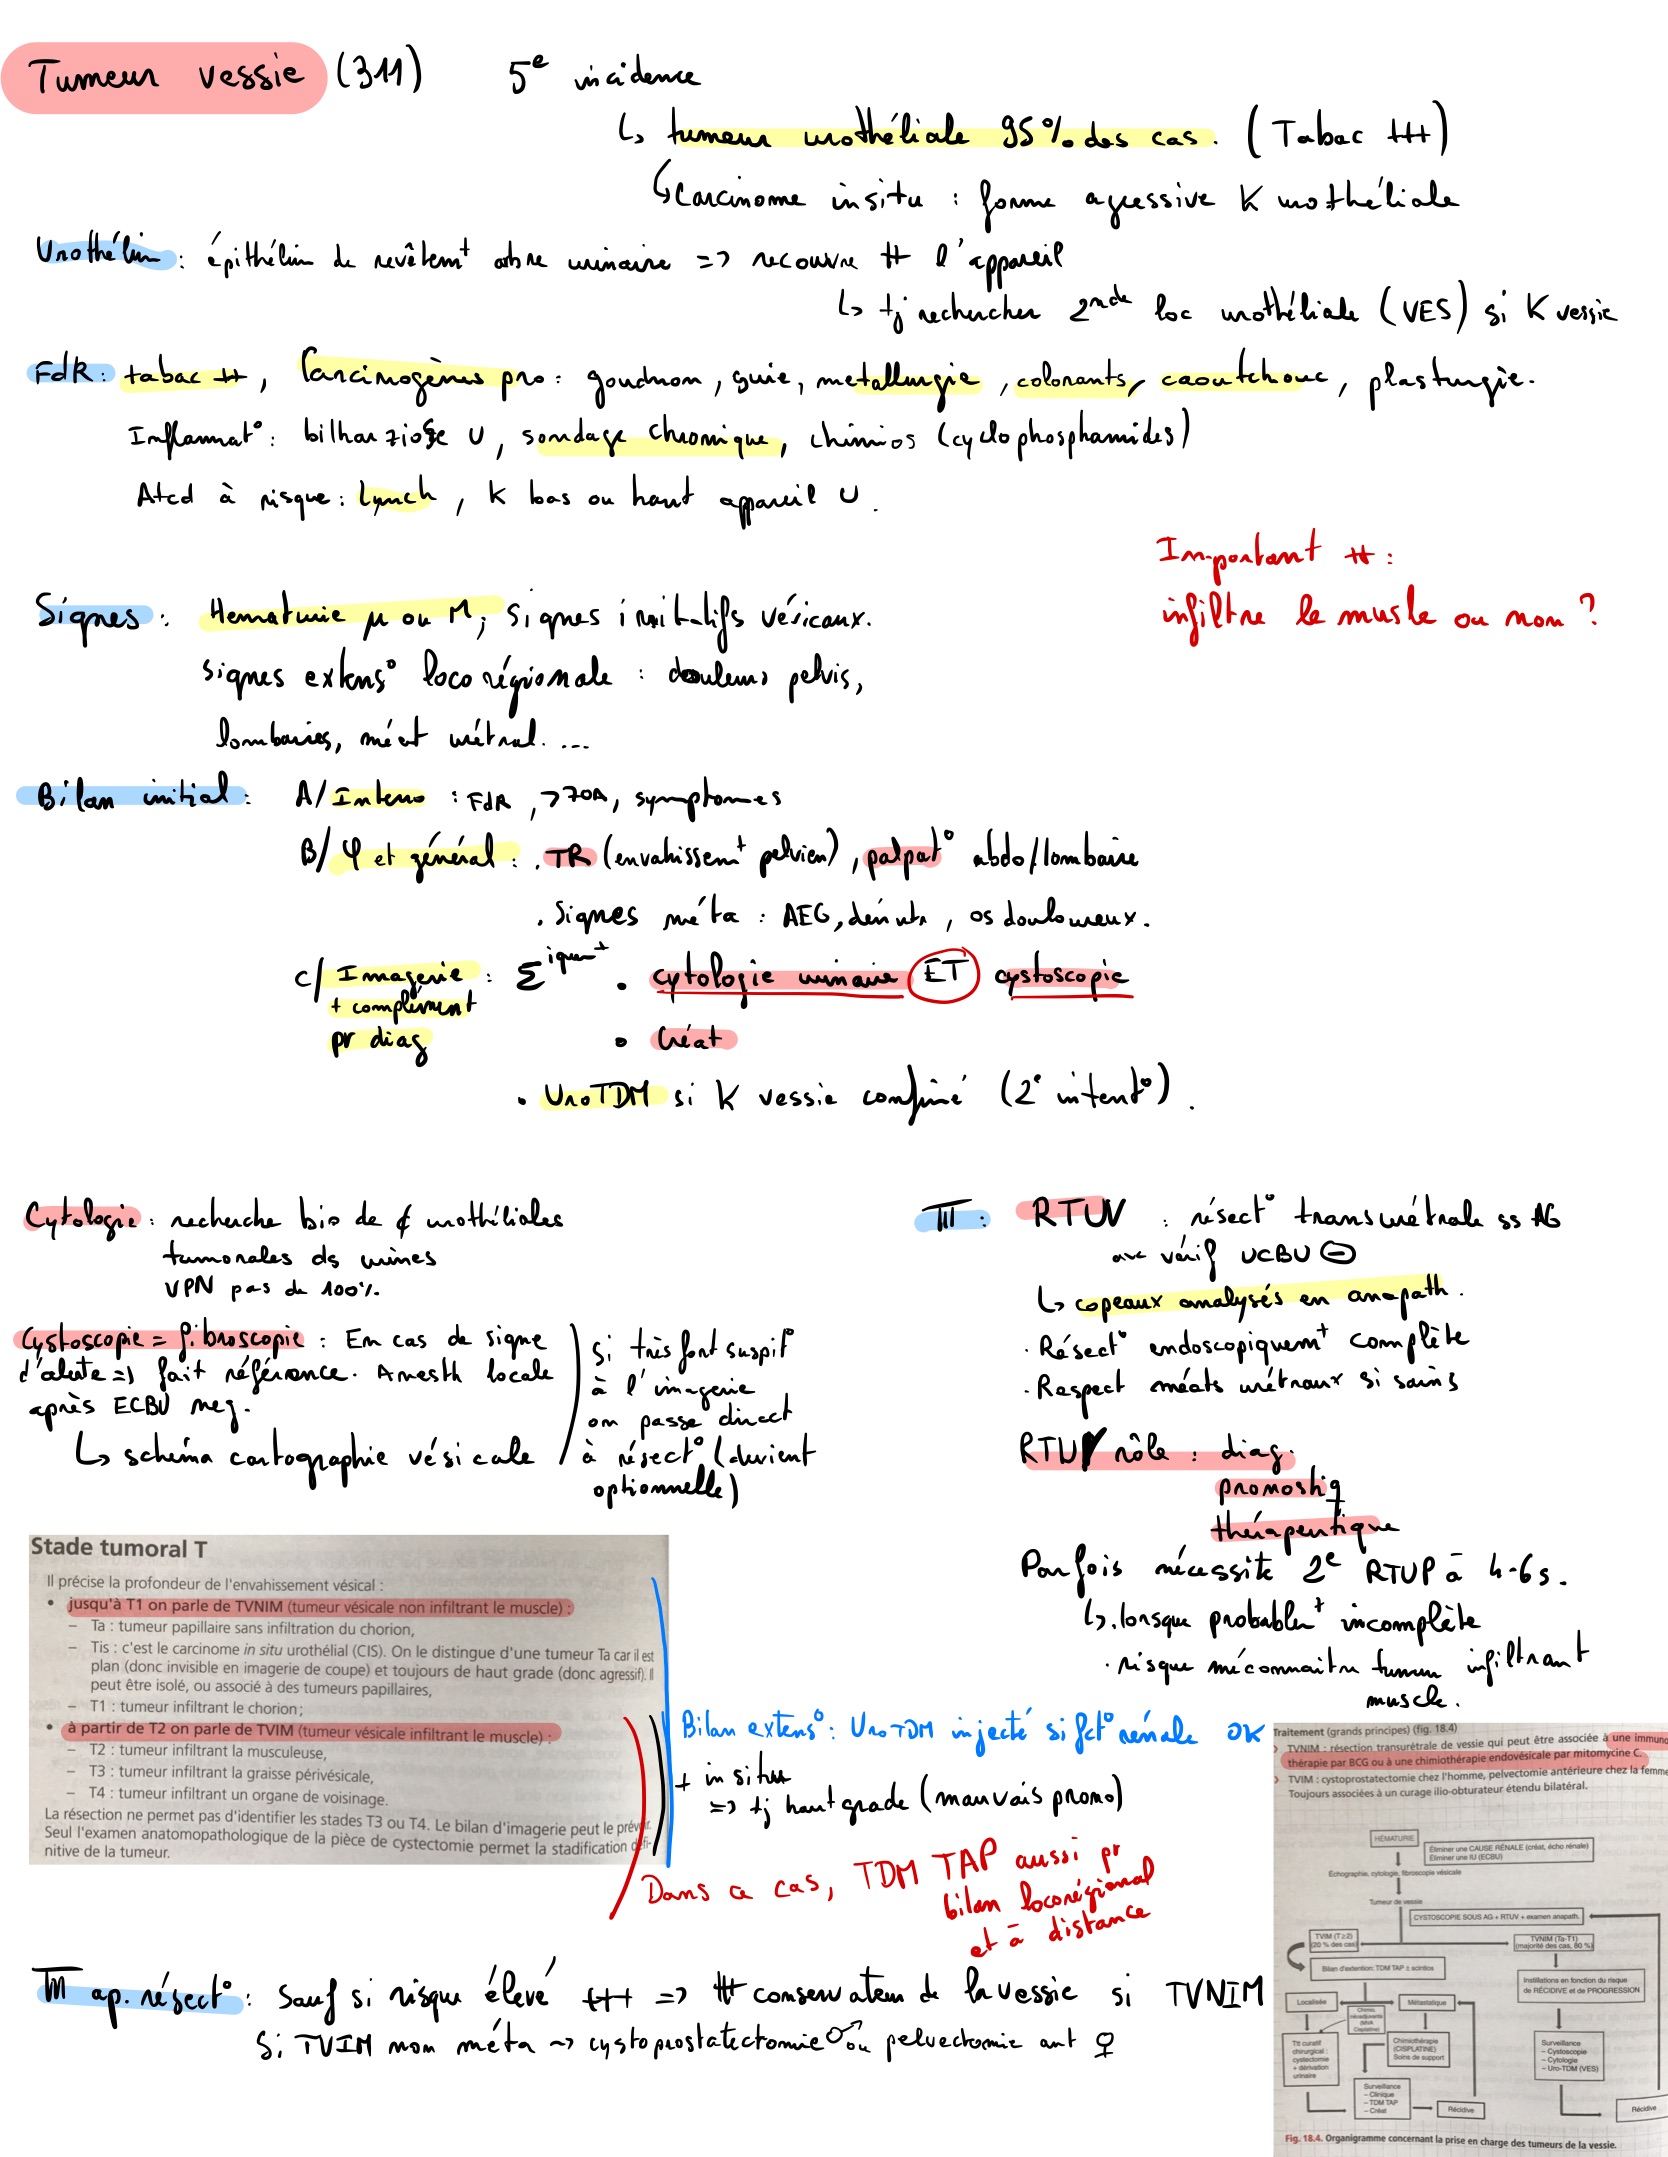 Tumeur vessie (311) 5e incidence
↳ tumeur urothéliale 95% des cas. (Tabac +++)
↳ Carcinome insitu : forme agressive K urothéliale
Urothélium : épithélium de revêtemt arbre urinaire => recouvre tt l'appareil
↳ tj rechercher 2nde loc urothéliale (VES) si K vessie
FdR : tabac ++, Carcinogènes pro : goudron, suie, metallurgie, colorants, caoutchouc, plasturgie.
Inflammat° : bilharziose U, sondage chronique, chimios (cyclophosphamides)
Atcd à risque : Lynch, K bas ou haut appareil U.
Important ++ :
infiltre le muscle ou non ?
Signes : Hematurie µ ou M, signes irritatifs vésicaux.
signes extens° locorégionale : douleurs pelvis,
lombaires, méat urétral....
Bilan initial : A/ Interro : FdR, >70A, symptomes
B/ φ et général : . TR (envahissemt pelvien), palpat° abdo/lombaire
. Signes méta : AEG, dénutr, os douloureux.
C/ Imagerie + complément pr diag : Σiquemt • cytologie urinaire ET cystoscopie
• Créat
• UroTDM si K vessie confirmé (2e intent°).
Cytologie : recherche bio de ¢ urothéliales
tumorales ds urines
VPN pas de 100%.
Cystoscopie = fibroscopie : En cas de signe
d'alerte => fait référence. Anesth locale
après ECBU neg.
↳ schéma cartographie vésicale
si très fort suspi°
à l'imagerie
on passe direct
à résect° (devient
optionnelle)
TTT : RTUV : résect° transurétrale ss AG
avec vérif UCBU ⊖
↳ copeaux analysés en anapath.
. Résect° endoscopiquemt complète
. Respect méats urétraux si sains
RTUV rôle : diag.
pronostiq
thérapeutique
Parfois nécessite 2e RTUP à 4-6s.
↳ . lorsque probablemt incomplète
. risque méconnaitre tumeur infiltrant
muscle.
Stade tumoral T
Il précise la profondeur de l'envahissement vésical :
• jusqu'à T1 on parle de TVNIM (tumeur vésicale non infiltrant le muscle) :
– Ta : tumeur papillaire sans infiltration du chorion,
– Tis : c'est le carcinome in situ urothélial (CIS). On le distingue d'une tumeur Ta car il est
plan (donc invisible en imagerie de coupe) et toujours de haut grade (donc agressif). Il
peut être isolé, ou associé à des tumeurs papillaires,
– T1 : tumeur infiltrant le chorion ;
• à partir de T2 on parle de TVIM (tumeur vésicale infiltrant le muscle) :
– T2 : tumeur infiltrant la musculeuse,
– T3 : tumeur infiltrant la graisse périvésicale,
– T4 : tumeur infiltrant un organe de voisinage.
La résection ne permet pas d'identifier les stades T3 ou T4. Le bilan d'imagerie peut le prévoir.
Seul l'examen anatomopathologique de la pièce de cystectomie permet la stadification défi-
nitive de la tumeur.
Bilan extens° : UroTDM injecté si fct° rénale OK
+ in situ
=> tj haut grade (mauvais prono)
Dans ce cas, TDM TAP aussi pr
bilan locorégional
et à distance
Traitement (grands principes) (fig. 18.4)
TVNIM : résection transurétrale de vessie qui peut être associée à une immuno
thérapie par BCG ou à une chimiothérapie endovésicale par mitomycine C.
TVIM : cystoprostatectomie chez l'homme, pelvectomie antérieure chez la femme
Toujours associées à un curage ilio-obturateur étendu bilatéral.
HÉMATURIE
Éliminer une CAUSE RÉNALE (créat, écho rénale)
Éliminer une IU (ECBU)
Échographie, cytologie, fibroscopie vésicale
Tumeur de vessie
CYSTOSCOPIE SOUS AG + RTUV + examen anapath.
TVIM (T≥2)
(20 % des cas)
TVNIM (Ta-T1)
(majorité des cas, 80 %)
Bilan d'extention: TDM TAP ± scintios
Instillations en fonction du risque
de RÉCIDIVE et de PROGRESSION
Localisée
Chimio.
néoadjuvante
(MVA
Cisplatine)
Métastatique
Ttt curatif
chirurgical :
cystectomie
+ dérivation
urinaire
Chimiothérapie
(CISPLATINE)
Soins de support
Surveillance
– Cystoscopie
– Cytologie
– Uro-TDM (VES)
Surveillance
– Clinique
– TDM TAP
– Créat
Récidive
Récidive
Fig. 18.4. Organigramme concernant la prise en charge des tumeurs de la vessie.
TTT ap. résect° : Sauf si risque élevé +++ => ttt conservateur de la vessie si TVNIM
Si TVIM non méta ~> cystoprostatectomie ♂ ou pelvectomie ant ♀